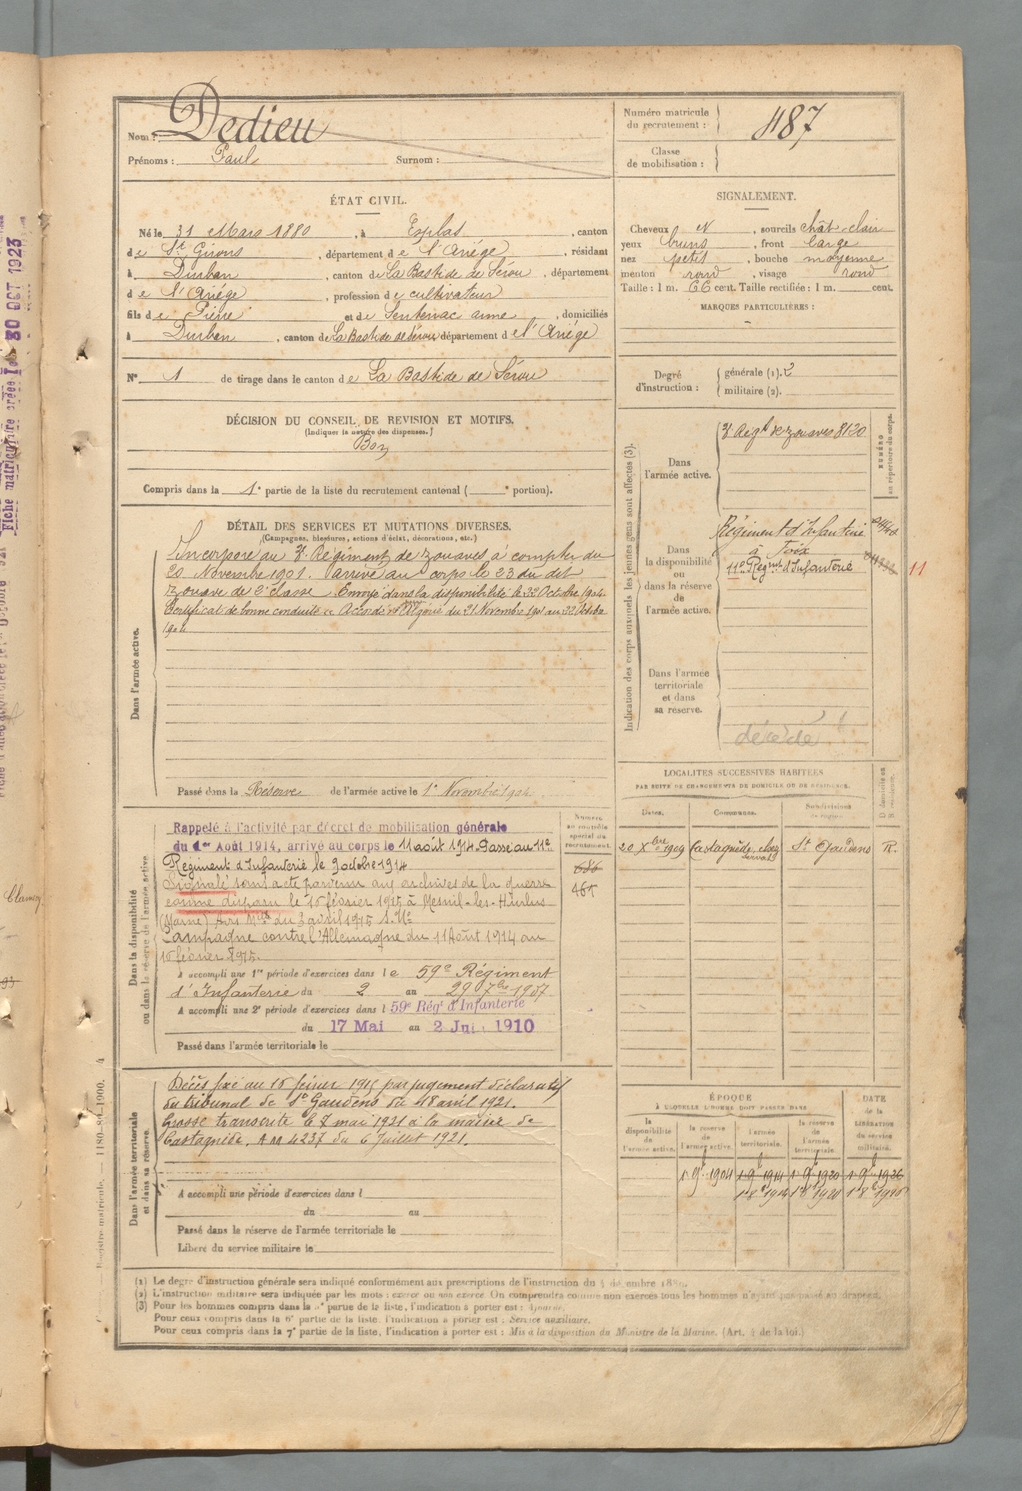 Nom : Dedieu
Prénoms : Paul Surnom :
Numéro matricule du recrutement : 487
Classe de mobilisation :
ÉTAT CIVIL.
Né le 31 Mars 1880, à Esplas, canton
de St Girons, département de l'Ariége, résidant
à Durban, canton de La Bastide de Sérou, département
de l'Ariége, profession de cultivateur
fils de Pierre et de Sentenac anne, domiciliés
à Durban, canton de La Bastide de Sérou département de l'Ariége
N° 1 de tirage dans le canton de La Bastide de Sérou
SIGNALEMENT.
Cheveux N, sourcils chât clair
yeux bruns, front large
nez petit, bouche moyenne
menton rond, visage rond
Taille : 1 m. 66 cent. Taille rectifiée : 1 m. cent.
MARQUES PARTICULIÈRES :
Degré d'instruction : générale (1). 2
militaire (2).
DÉCISION DU CONSEIL DE REVISION ET MOTIFS.
(Indiquer la nature des dispenses.)
Bon
Compris dans la 1e partie de la liste du recrutement cantonal ( e portion).
DÉTAIL DES SERVICES ET MUTATIONS DIVERSES.
(Campagnes, blessures, actions d'éclat, décorations, etc.)
Dans l'armée active.
Incorporé au Régiment de zouaves à compter du
20 Novembre 1901. arrivé au corps le 23 du dit
zouave de 2e classe. Envoyé dans la disponibilité le Octobre 1904.
Certificat de bonne conduite Accordé. Algérie du 21 Novembre 1901 au Octobre
1904
Passé dans la Réserve de l'armée active le 1er Novembre 1904.
Indication des corps auxquels les jeunes gens sont affectés (3).
NUMÉRO au répertoire du corps.
Dans l'armée active.
Régt de zouaves 8130
Dans la disponibilité ou dans la réserve de l'armée active.
Régiment d'Infanterie
à Foix
11e Régiment d'Infanterie
11
Dans l'armée territoriale et dans sa réserve.
décédé
Dans la disponibilité ou dans la réserve de l'armée active.
Numéro au contrôle spécial du recrutement.
461
Rappelé à l'activité par décret de mobilisation générale
du 1er Août 1914, arrivé au corps le 11 août 1914. Passé au 11e
Régiment d'Infanterie le 9 octobre 1914
Signalé sous acte parvenu aux archives de la guerre
comme disparu le 16 février 1915 à Mesnil-les-Hurlus
(Marne) Avis du 3 avril 1915
Campagne contre l'Allemagne du 11 Août 1914 au
16 février 1915.
A accompli une 1re période d'exercices dans le 59e Régiment
d'Infanterie du 2 au 29 7bre 1907
A accompli une 2e période d'exercices dans l 59e Régt d'Infanterie
du 17 Mai au 2 Jui 1910
Passé dans l'armée territoriale le
LOCALITÉS SUCCESSIVES HABITÉES
PAR SUITE DE CHANGEMENTS DE DOMICILE OU DE RÉSIDENCE.
Dates. Communes. Subdivisions de région. D. domicile ou R. résidence.
20 Xbre 1909 Castagnède St Gaudens R.
Dans l'armée territoriale et dans sa réserve.
Décès fixé au 16 février 1915 par jugement déclaratif
du tribunal de St Gaudens du 18 avril 1921.
Grosse transcrite le 7 mai 1921 à la mairie de
Castagnède. 4237 du 6 Juillet 1921.
A accompli une période d'exercices dans l
du au
Passé dans la réserve de l'armée territoriale le
Libéré du service militaire le
ÉPOQUE
À LAQUELLE L'HOMME DOIT PASSER DANS
la disponibilité de l'armée active. la réserve de l'armée active. l'armée territoriale. la réserve de l'armée territoriale. DATE de la LIBÉRATION du service militaire.
1er 9bre 1904 1er 9bre 1914 1er 9bre 1920 1er 9bre 1926
(1) Le degré d'instruction générale sera indiqué conformément aux prescriptions de l'instruction du
(2) L'instruction militaire sera indiquée par les mots : exercé ou non exercé. On comprendra comme non exercés tous les hommes n'ayant pas passé au drapeau.
(3) Pour les hommes compris dans la partie de la liste, l'indication à porter est : Ajourné.
Pour ceux compris dans la 6e partie de la liste, l'indication à porter est : Service auxiliaire.
Pour ceux compris dans la 7e partie de la liste, l'indication à porter est : Mis à la disposition du Ministre de la Marine. (Art. 4 de la loi.)
Registre matricule. — 1180-89-1900.
30 OCT 1923
Fiche matriculaire créée le